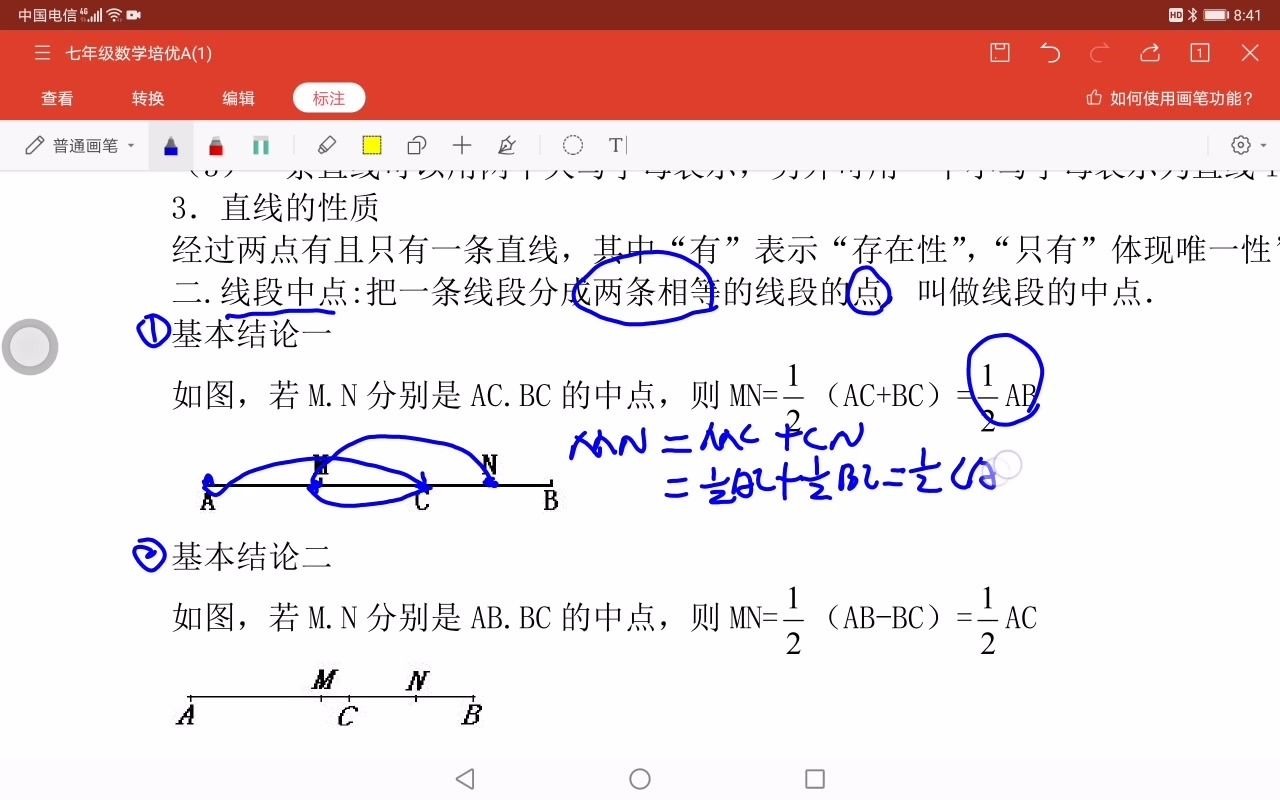 中国电信 4G HD 8:41
七年级数学培优A(1) 1
查看 转换 编辑 标注 如何使用画笔功能?
普通画笔 T
3．直线的性质
经过两点有且只有一条直线，其中“有”表示“存在性”，“只有”体现唯一性”
二.线段中点:把一条线段分成两条相等的线段的点，叫做线段的中点．
①基本结论一
如图，若 M.N 分别是 AC.BC 的中点，则 MN=1/2（AC+BC）=1/2 AB
MN = MC + CN
= 1/2AC + 1/2BC = 1/2 (
M N
A C B
②基本结论二
如图，若 M.N 分别是 AB.BC 的中点，则 MN=1/2（AB-BC）=1/2 AC
M N
A C B